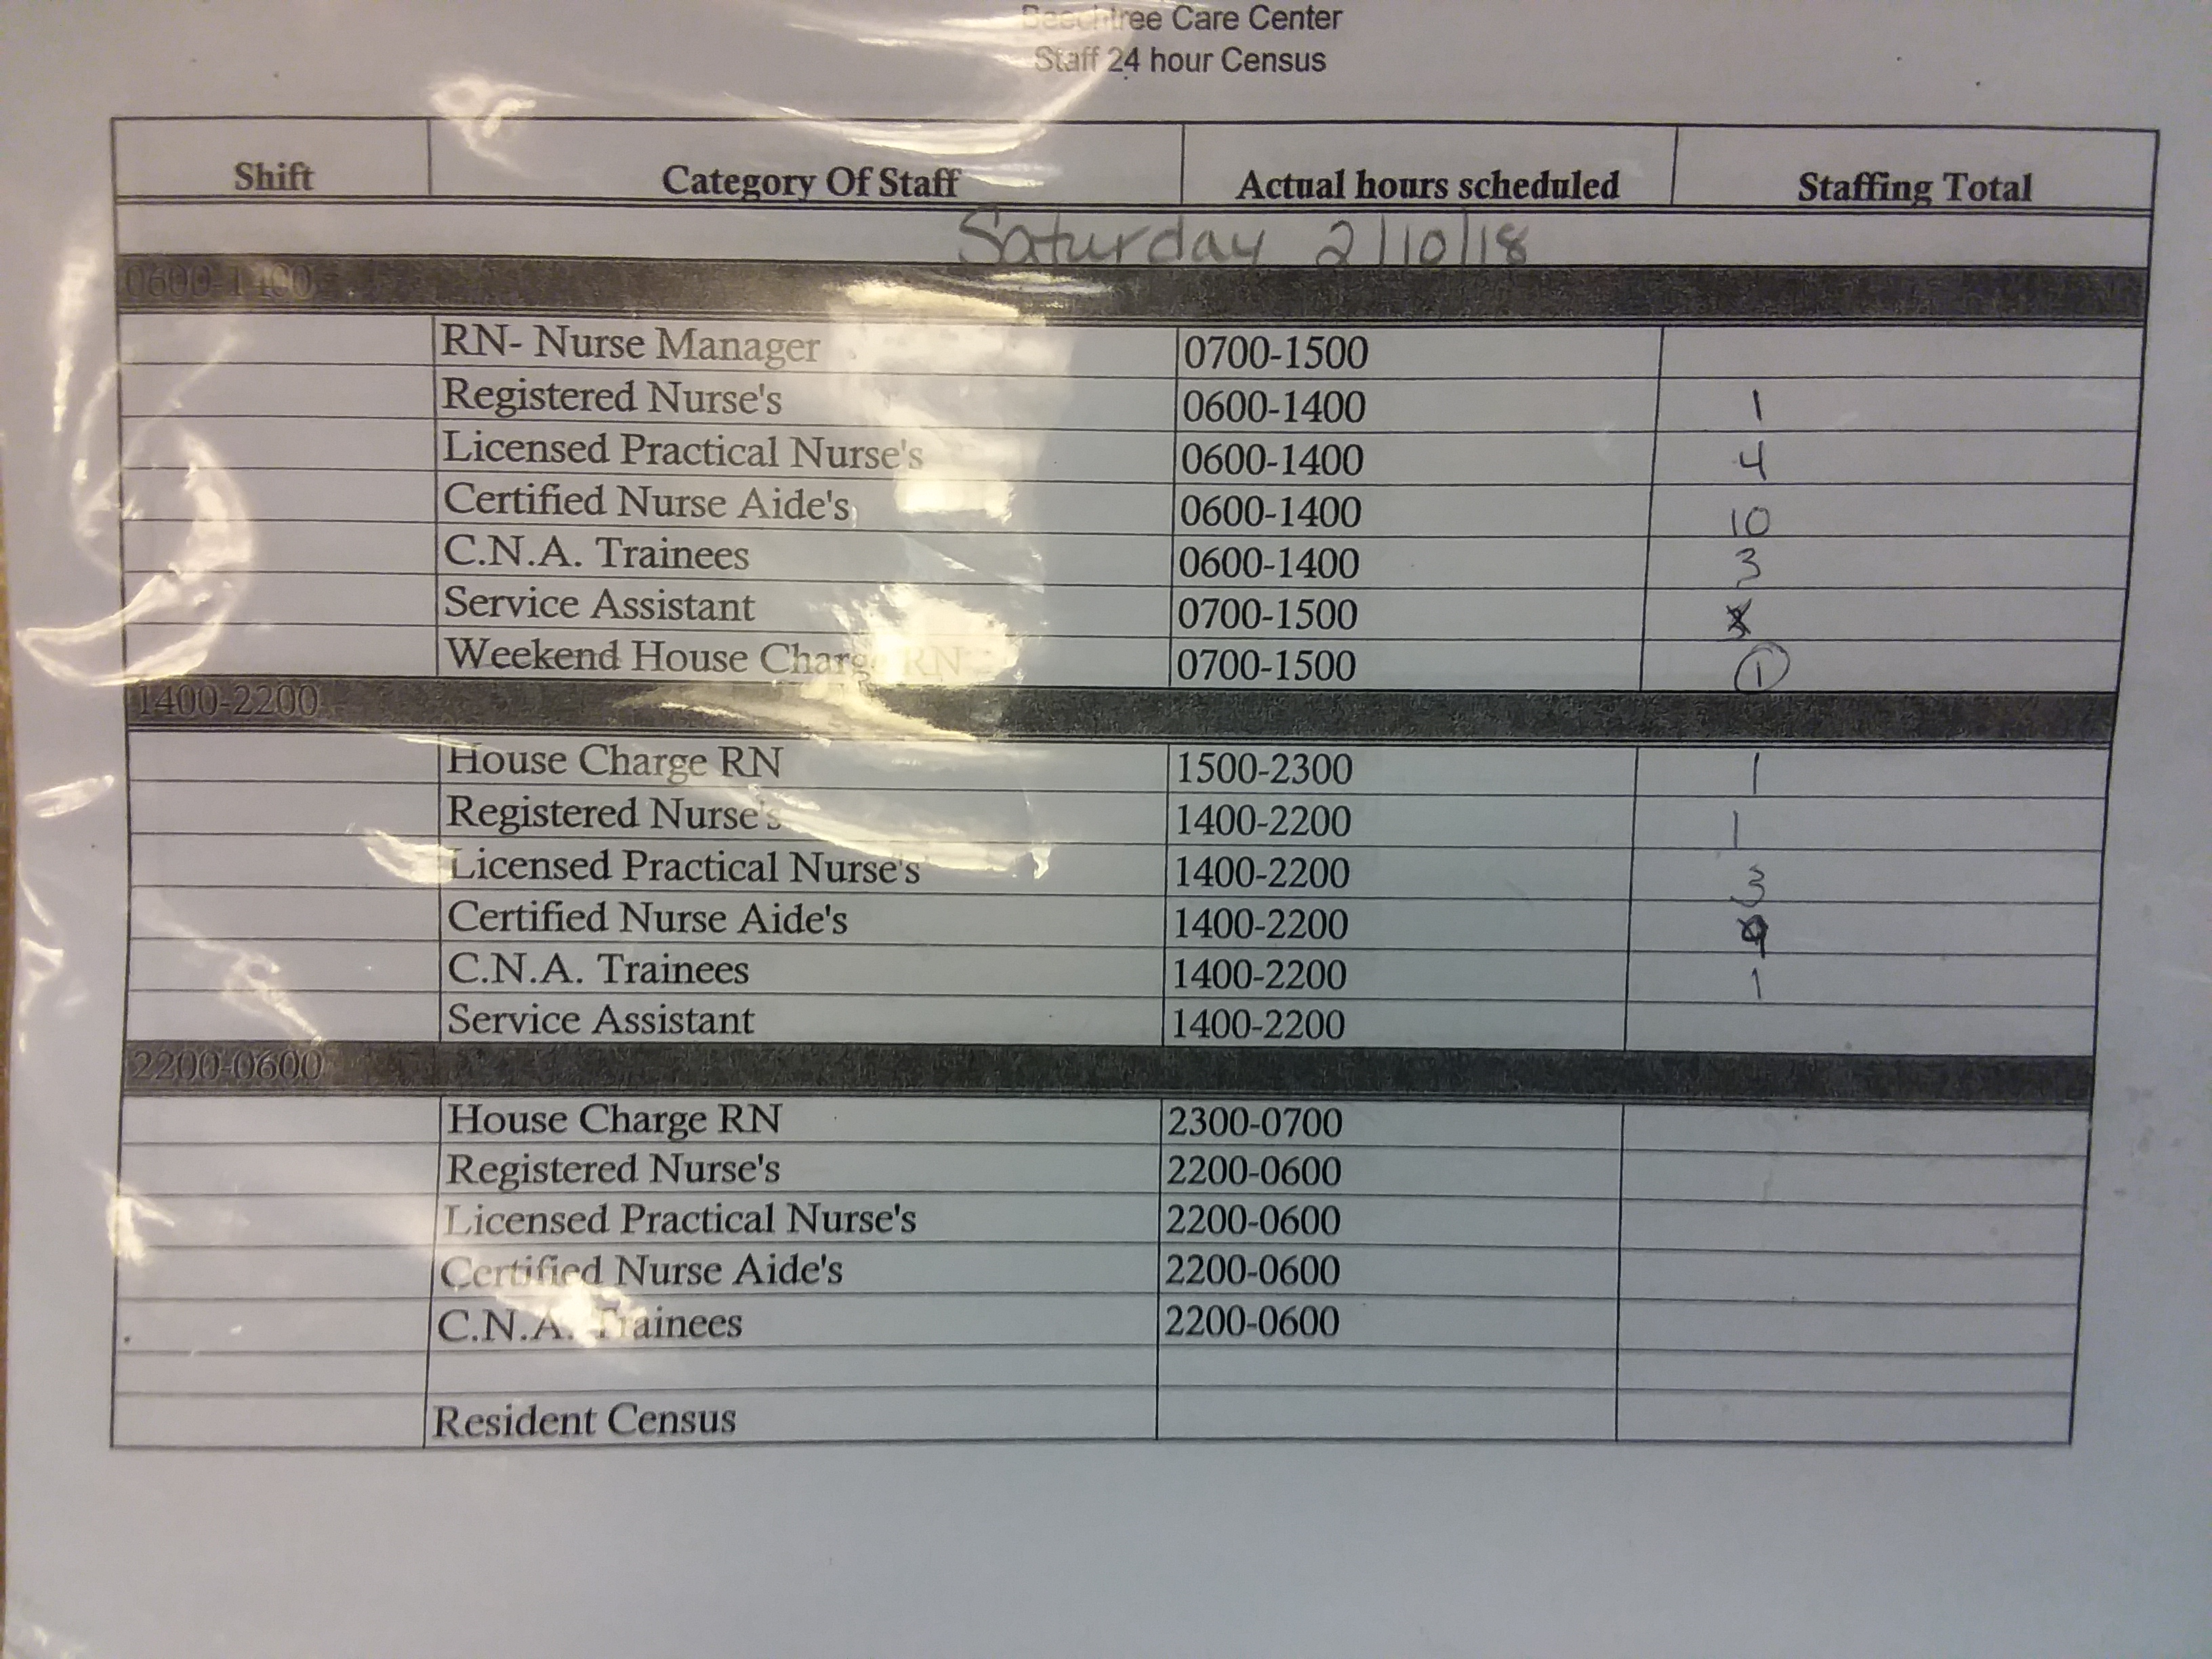 Beechtree Care Center
Staff 24 hour Census
Shift Category Of Staff Actual hours scheduled Staffing Total
Saturday 2/10/18
0600-1400
RN- Nurse Manager 0700-1500
Registered Nurse's 0600-1400 1
Licensed Practical Nurse's 0600-1400 4
Certified Nurse Aide's 0600-1400 10
C.N.A. Trainees 0600-1400 3
Service Assistant 0700-1500
Weekend House Charge RN 0700-1500 1
1400-2200
House Charge RN 1500-2300 1
Registered Nurse's 1400-2200 1
Licensed Practical Nurse's 1400-2200 3
Certified Nurse Aide's 1400-2200
C.N.A. Trainees 1400-2200 1
Service Assistant 1400-2200
2200-0600
House Charge RN 2300-0700
Registered Nurse's 2200-0600
Licensed Practical Nurse's 2200-0600
Certified Nurse Aide's 2200-0600
C.N.A. Trainees 2200-0600
Resident Census